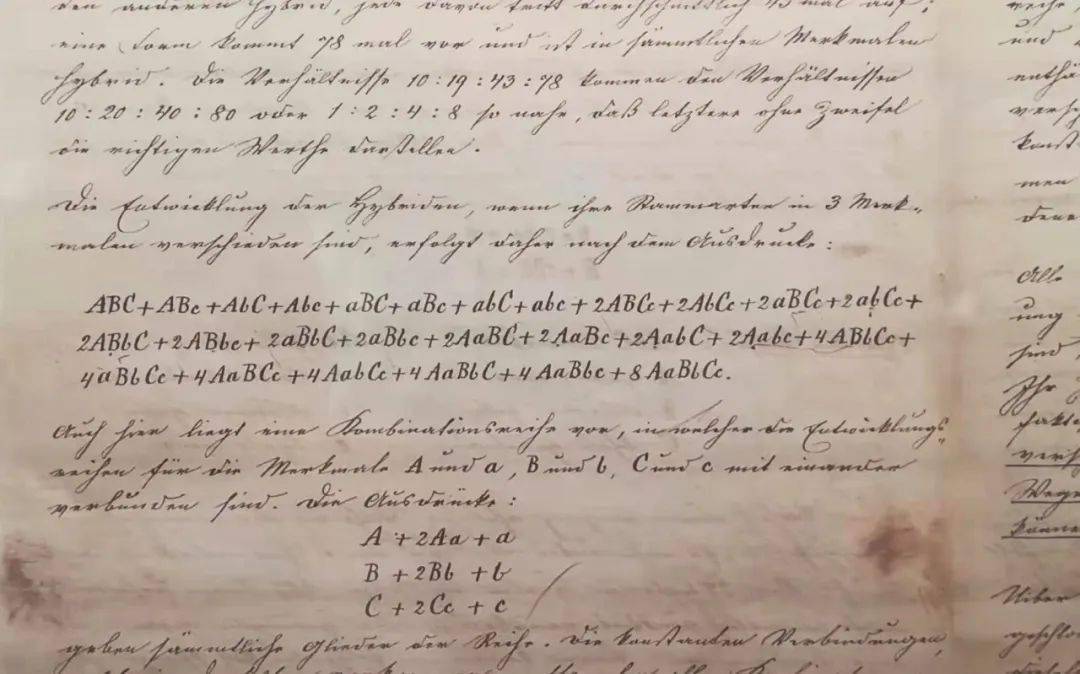 den anderen hybrid, jede davon tritt durchschnittlich 43 mal auf;
eine Form kommt 78 mal vor und ist in sämmtlichen Merkmalen
hybrid. Die Verhältnisse 10 : 19 : 43 : 78 kommen den Verhältnissen
10 : 20 : 40 : 80 oder 1 : 2 : 4 : 8 so nahe, daß letztere ohne Zweifel
die richtigen Werthe darstellen.
Die Entwicklung der Hybriden, wenn ihre Stammarten in 3 Merk-
malen verschieden sind, erfolgt daher nach dem Ausdrucke:
ABC + ABc + AbC + Abc + aBC + aBc + abC + abc + 2ABCc + 2AbCc + 2aBCc + 2abCc +
2ABbC + 2ABbc + 2aBbC + 2aBbc + 2AaBC + 2AaBc + 2AabC + 2Aabc + 4ABbCc +
4aBbCc + 4AaBCc + 4AabCc + 4AaBbC + 4AaBbc + 8AaBbCc.
Auch hier liegt eine Kombinationsreihe vor, in welcher die Entwicklungs-
reihen für die Merkmale A und a, B und b, C und c mit einander
verbunden sind. Die Ausdrücke:
A + 2Aa + a
B + 2Bb + b
C + 2Cc + c
geben sämmtliche Glieder der Reihe. Die konstanten Verbindungen,
und
men
Alle
ung
sind
Ihr
vers
Wege
könne
Über
geschlo